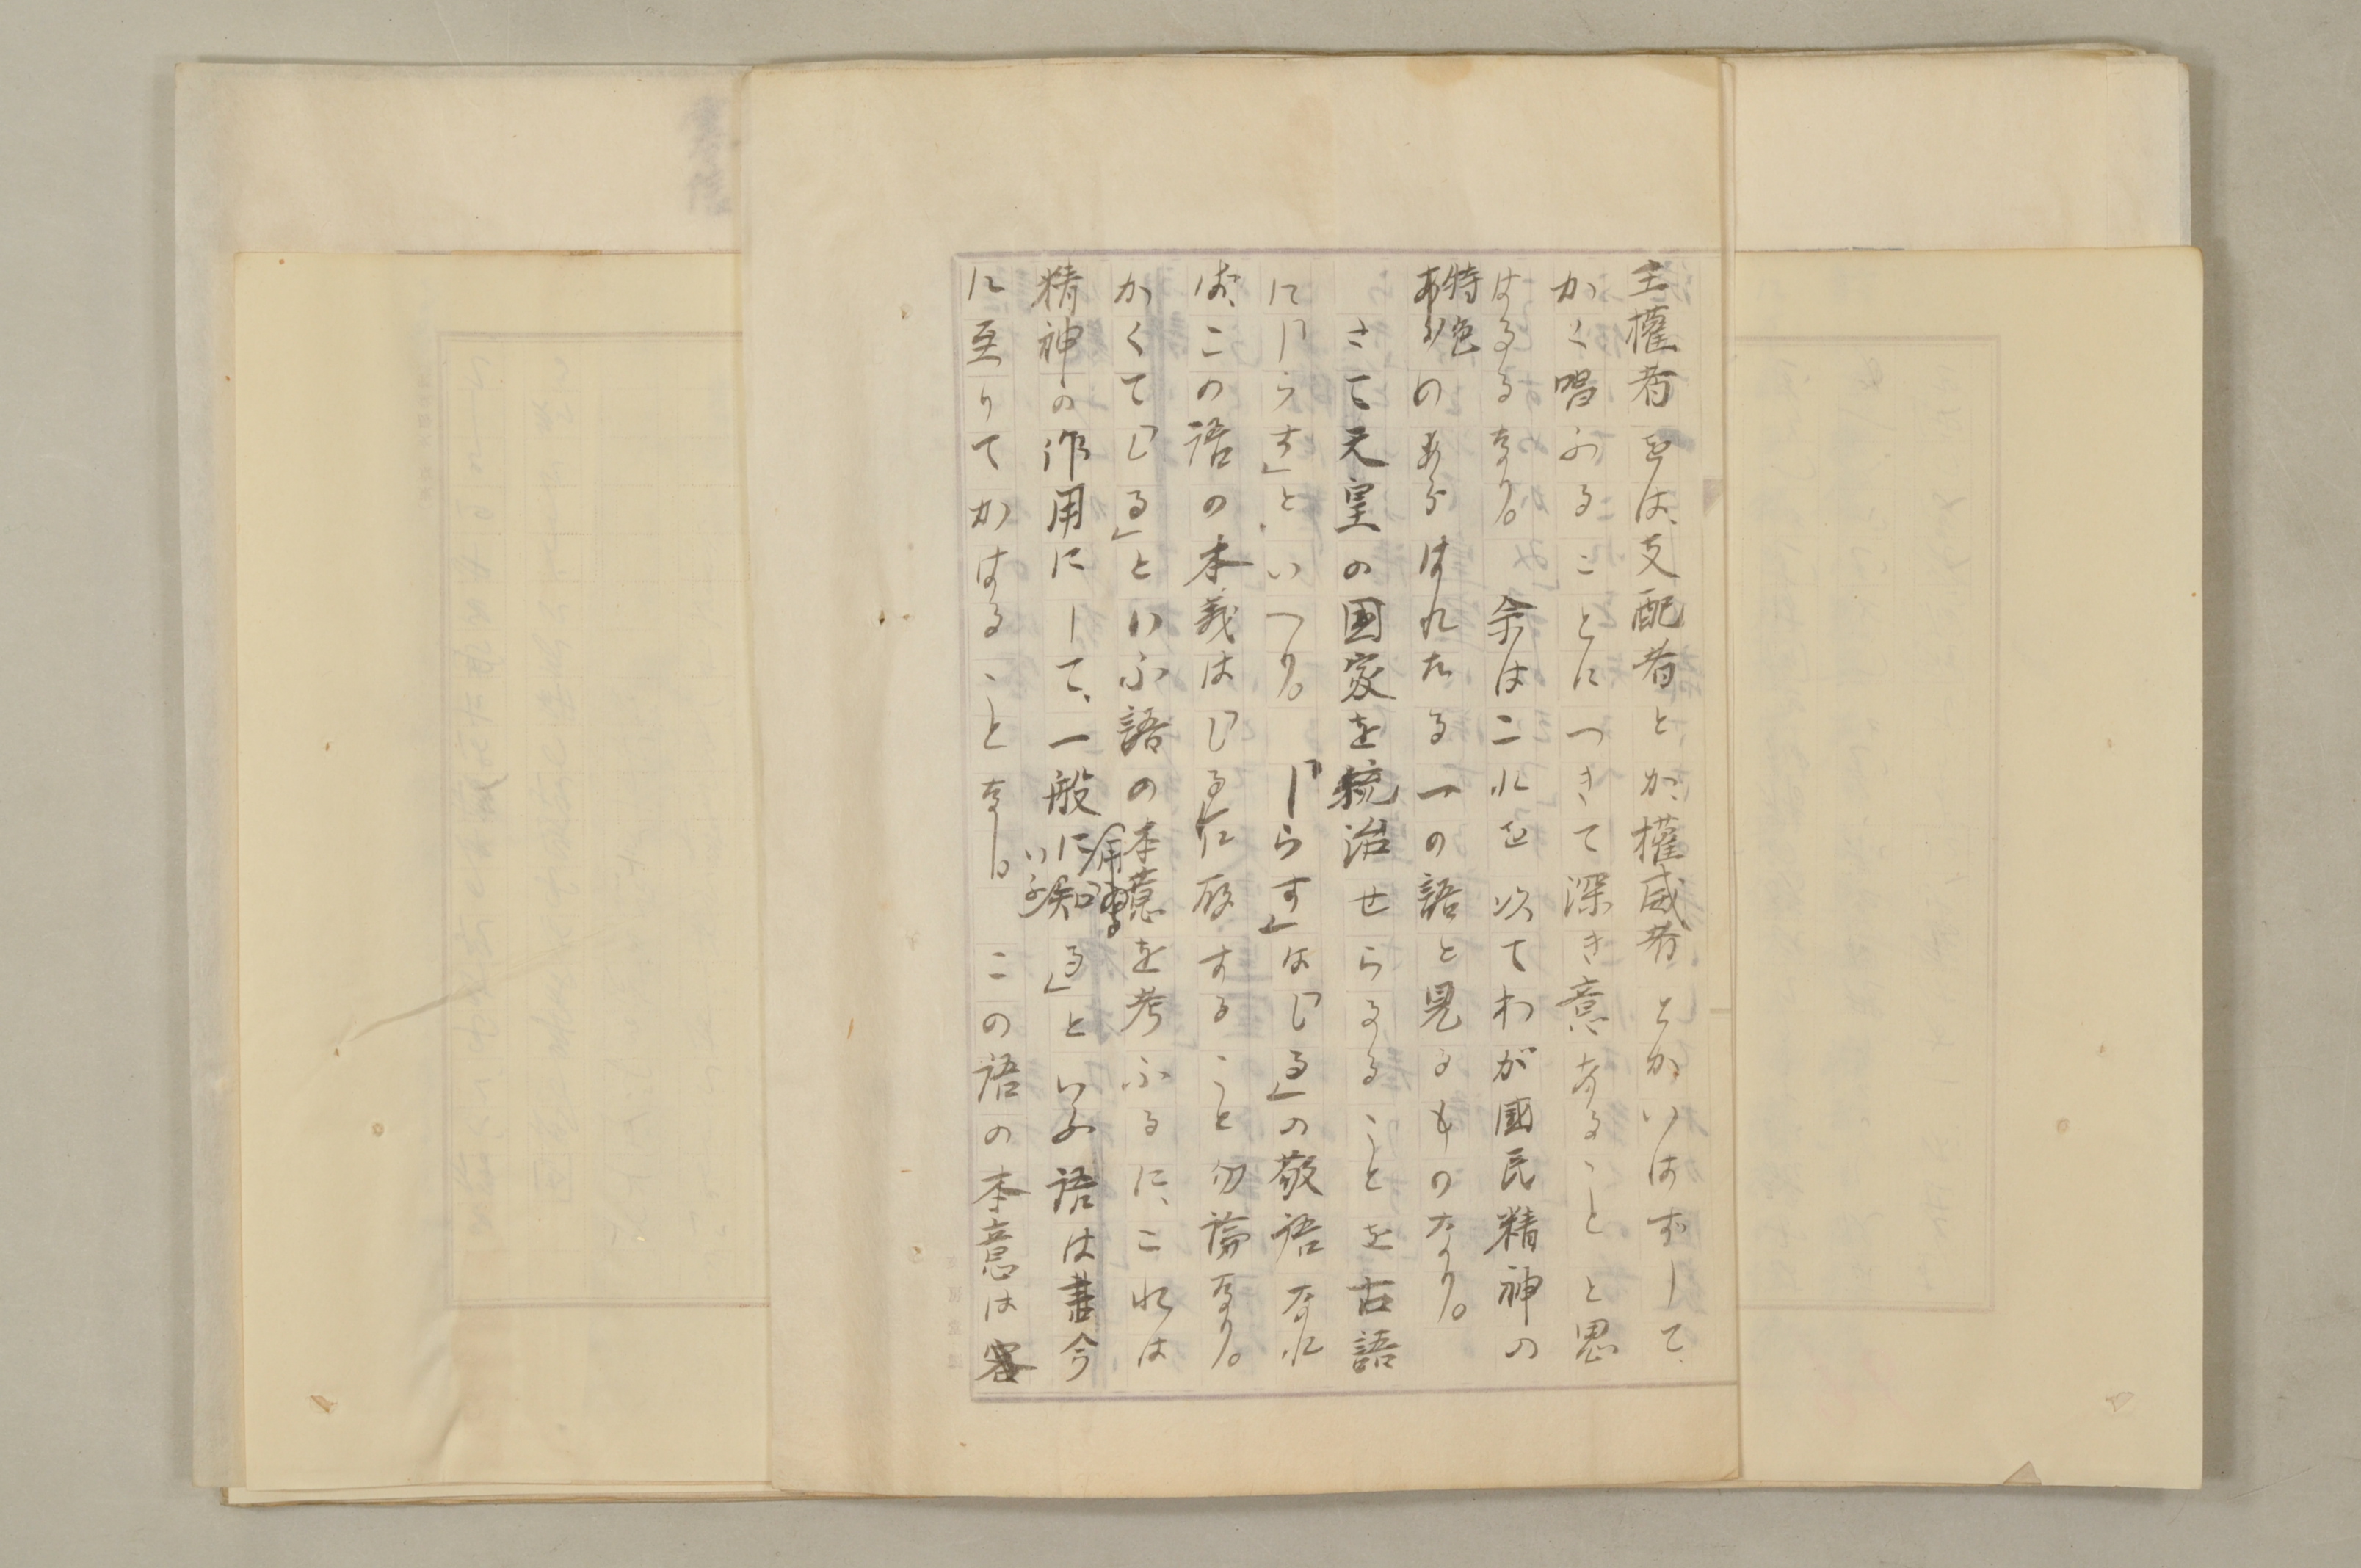 主權者をば、支配者とか、權威者とかいはずして、
かく唱ふることにつきて深き意あることと思
はるるなり。余はこれを以てわが國民精神の
特色のあらはれたる一の語と見るものなり。
さて天皇の国家を統治せらるることを古語
に「しらす」といへり。「しらす」は「しる」の敬語なれ
ば、この語の本義は「しる」に存することゝ勿論なり。
かくて「しる」といふ語の本意を考ふるに、これは
精神の作用にして、一般にいふ「知る」といふ語は今
に至りてかはることなし。この語の本意は